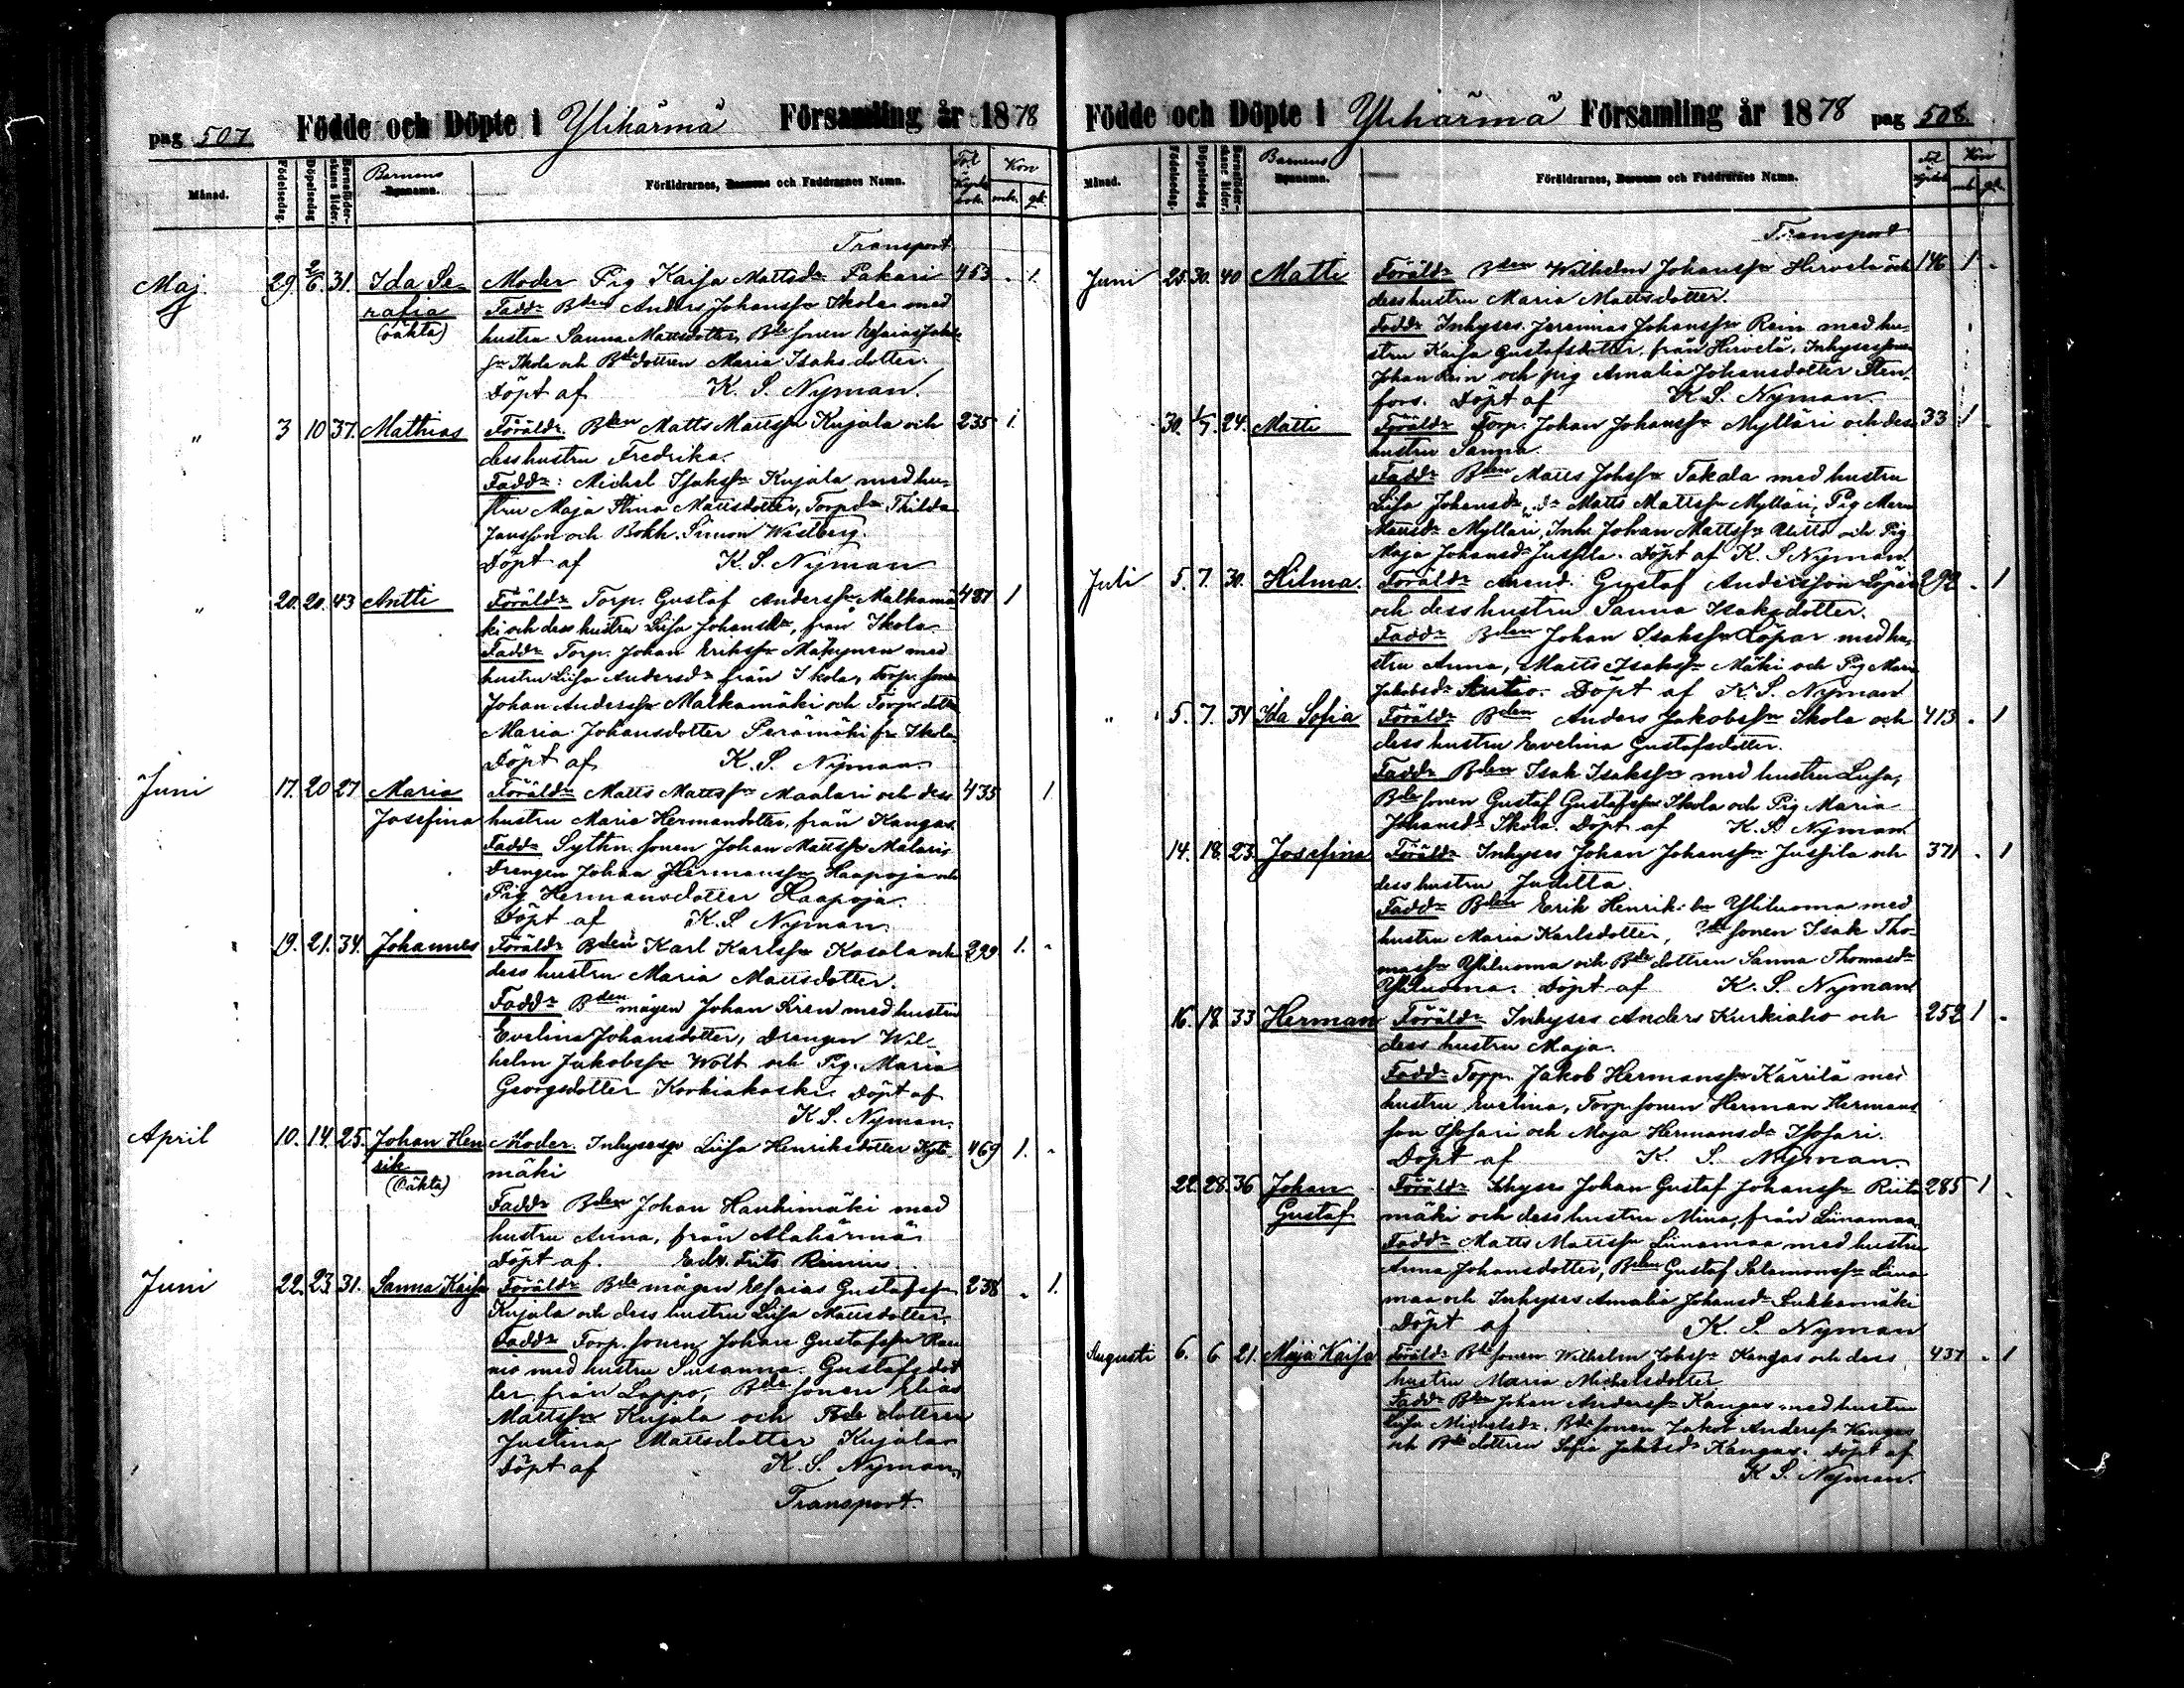 pag 507 Födde och Döpte i Ylihärmä Församling år 1878
Månad. Födelsedag. Döpelsedag Barnaföderskans ålder. Barnens Egnnamn. Föräldrarnes, Barnens och Faddrarnes Namn. Fol Kyrkobok. Kön mk. qk.
Transport
Maj 29 2/6 31. Ida Se- Moder Pig Kaisa Mattsdr Pakari 453 - 1.
rafia Faddr Bden Anders Johanssn Skola med
(oäkta) hustru Sanna Mattsdotter, Bde sonen Esaias
sn Skola och Bde dottren Maria Isaksdotter.
Döpt af K. S. Nyman.
" 3 10 37. Mathias Föräldr. Bden Matts Mattssn Kujala och 235 1.
dess hustru Fredrika.
Faddr: Michel Isakssn Kujala med hu-
stru Maja Stina Mattsdotter, Torpdr Thilda
Jansson och Bokh. Simon Westberg.
Döpt af K. S. Nyman
" 20. 20. 43 Antti Föräldr Torp. Gustaf Anderssn Malkamä- 487 1
ki och dess hustru Liisa Johansdr, från Skola.
Faddr Torp. Johan Erikssn Mäkynen med
hustru Liisa Andersdr från Skola, Torp. sonen
Johan Anderssn Malkamäki och Torp. dottren
Maria Johansdotter Perämäki fr Skola.
Döpt af K. S. Nyman.
Juni 17. 20 27 Maria Föräldr Matts Mattssn Maalari och dess 435 1.
Josefina hustru Maria Hermansdotter, från Kangas.
Faddr Sythn. sonen Johan Mattssn Målari,
Drengen Johan Hermanssn Haapoja och
Pig. Hermansdotter Haapoja.
Döpt af K. S. Nyman.
19. 21. 34. Johannes Föräldr Bden Karl Karlssn Kosola och 299 1. -
dess hustru Maria Mattsdotter.
Faddr Bden mågen Johan Siren med hustru
Evelina Johansdotter, Drengen Wil-
helm Jakobssn Wolt och Pig. Maria
Georgsdotter Korkiakoski. Döpt af
K. S. Nyman.
April 10. 14. 25. Johan Hen- Moder. Inhyses Liisa Henriksdotter Kyto- 469 1. -
rik mäki
(Oäkta)
Faddr Bden Johan Hanhimäki med
hustru Anna, från Alahärmä.
Döpt af. Edv. Frits Reinius.
Juni 22. 23 31. Sanna Kaisa Föräldr Bde mågen Esaias Gustafssn 238 - 1.
Kujala och dess hustru Liisa Mattsdotter.
Faddr Torp. sonen Johan Gustafssn Rau-
nio med hustru Susanna Gustafsdot-
ter, från Lappo, Bde sonen Elias
Mattssn Kujala och Bde dottren
Justina Mattsdotter Kujala
Döpt af K. S. Nyman,
Transport.
Födde och Döpte i Ylihärmä Församling år 1878 pag 508.
Månad. Födelsedag. Döpelsedag Barnaföderskans ålder. Barnens Egnnamn. Föräldrarnes, Barnens och Faddrarnes Namn. Fol Kyrkobok Kön mk. qk.
Transport
Juni 25. 30. 40 Matti Föräldr Bden Wilhelm Johanssn Hirvelä och 146 1 -
dess hustru Maria Mattsdotter.
Faddr Inhyses. Jeremias Johanssn Rein med hu-
stru Kaisa Gustafsdotter, från Hirvelä, Inhyses sonen
Johan Rein och pig Amalia Johansdotter Sten-
fors. Döpt af K. S. Nyman
30. 1/7. 24. Matti Föräldr Torp. Johan Johanssn Mylläri och dess 33 1
hustru Sanna.
Faddr Bden Matts Johssn Takala med hustru
Liisa Johansdr, dr Matts Mattssn Mylläri, Pig Maria
Mattsdr Mylläri, Inh. Johan Mattssn och Pig
Maja Johansdr Jussila. Döpt af K. S. Nyman
Juli 5. 7. 30. Hilma. Föräldr Arend. Gustaf Andersson Löpar 292 - 1
och dess hustru Sanna Isaksdotter.
Faddr Bden Johan Isakssn Löpar med hu-
stru Anna, Matts Isakssn Mäki och Pig Maria
Jakobsdr Antio. Döpt af K. S. Nyman.
" 5. 7. 34 Ida Sofia Föräldr Bden Anders Jakobssn Skola och 413 - 1
dess hustru Evelina Gustafsdotter.
Faddr Bden Isak Isakssn med hustru Liisa,
Bde sonen Gustaf Gustafssn Skola och Pig Maria
Johansdr Skola. Döpt af K. S. Nyman
14. 18. 23. Josefina Föräldr Inhyses Johan Johanssn Jussila och 371 - 1
dess hustru Juditta.
Faddr Bden Erik Henrikssn Yliluoma med
hustru Maria Karlsdotter, Bde sonen Isak Tho-
massn Yliluoma och Bde dottren Sanna Thomasdr
Yliluoma. Döpt af K. S. Nyman
16. 18. 33 Herman Föräldr Inhyses Anders Kurkiaho och 252 1 -
dess hustru Maja.
Faddr Torp. Jakob Hermanssn Kärrilä med
hustru Evelina, Torp. sonen Herman Hermans-
son Isosaari och Maja Hermansdr Isosaari.
Döpt af K. S. Nyman.
22. 28. 36 Johan Föräldr Inhyses Johan Gustaf Johanssn Riita- 285 1 -
Gustaf mäki och dess hustru Mina, från Liinamaa.
Faddr Matts Mattssn Liinamaa med hustru
Anna Johansdotter, Bden Gustaf Salomonssn Liina-
maa och Inhyses Amalia Johansdr Lukkamäki
Döpt af K. S. Nyman
Augusti 6. 6 21. Maja Kaisa Föräldr Bde sonen Wilhelm Johssn Kangas och dess 437 - 1
hustru Maria Michelsdotter
Faddr Bden Johan Anderssn Kangas med hustru
Liisa Michelsdr, Bde sonen Jakob Anderssn Kangas
och Bde dottren Sofia Jakobsdr Kangas. Döpt af
K. S. Nyman.